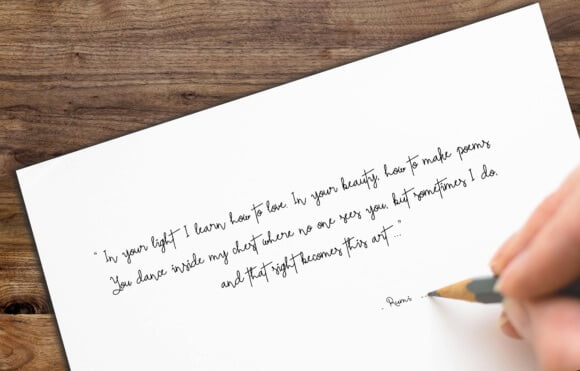 “ In your light I learn how to love. In your beauty, how to make poems
You dance inside my chest where no one sees you, but sometimes I do,
and that sight becomes this art ...”
. Rumi ...